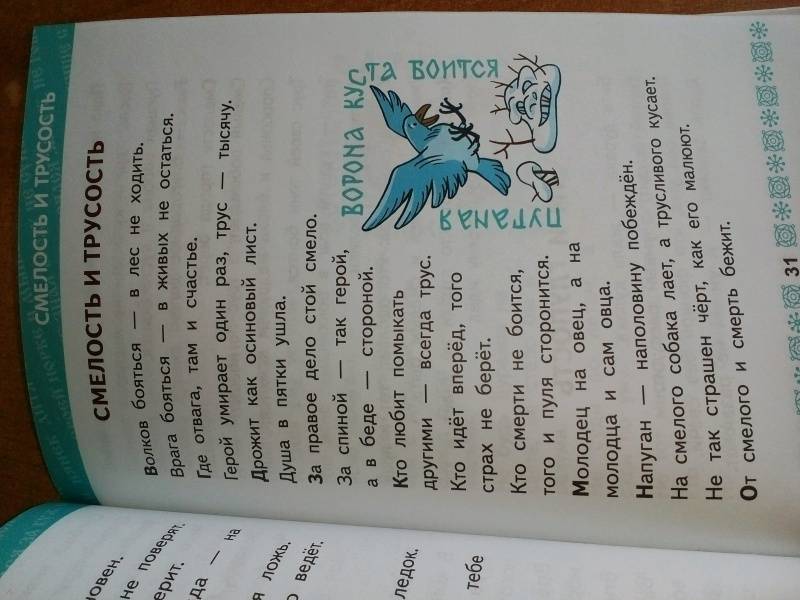 СМЕЛОСТЬ И ТРУСОСТЬ
СМЕЛОСТЬ И ТРУСОСТЬ
Волков бояться — в лес не ходить.
Врага бояться — в живых не остаться.
Где отвага, там и счастье.
Герой умирает один раз, трус — тысячу.
Дрожит как осиновый лист.
Душа в пятки ушла.
За правое дело стой смело.
За спиной — так герой,
а в беде — стороной.
Кто любит помыкать
другими — всегда трус.
Кто идёт вперёд, того
страх не берёт.
Кто смерти не боится,
того и пуля сторонится.
Молодец на овец, а на
молодца и сам овца.
Напуган — наполовину побеждён.
На смелого собака лает, а трусливого кусает.
Не так страшен чёрт, как его малюют.
От смелого и смерть бежит.
ПУГАНАЯ
ВОРОНА КУСТА БОИТСЯ
31
не поверят.
— на
ложь.
ведёт.
тебе